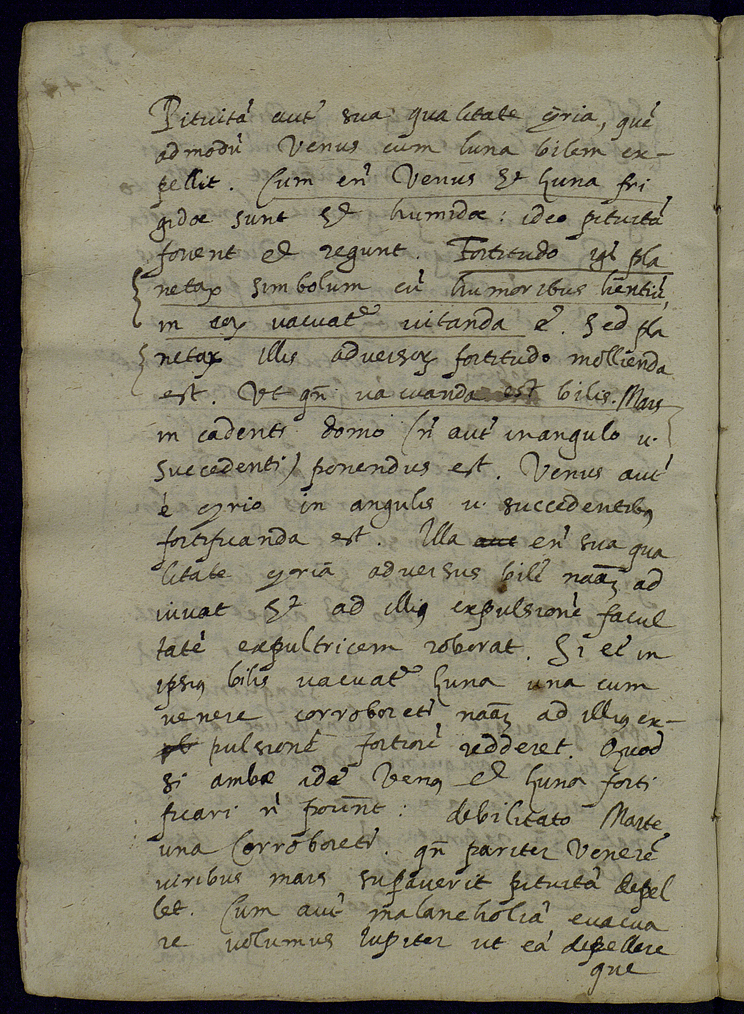 Pituitā aut̄ sua qualitate q̄ria, quē
admodū Venus cum luna bilem ex-
pellit. Cum en̄ Venus et luna fri
gidæ sunt et humidæ: ideo pituitā
fovent et regunt. Fortitudo igr̄ pla
netaꝝ simbolum cū humoribus hēntiū,
in eoꝝ vacuatē vitanda ē. Sed pla
netaꝝ illis adversoꝝ fortitudo mollienda
est. Ut qn̄ vacuanda est bilis. Mars
in cadenti domo (n̄ aut̄ in angulo u.
succedenti) ponendus est. Venus aut̄
è q̄rio in angulis u. succedentibꝰ
fortificanda est. Illa aut en̄ sua qua
litate q̄riā adversus bilē naāꝫ ad
iuvat et ad illiꝰ expulsionē facul
tatē expultricem roborat. Si et̄ in
ipsiꝰ bilis vacuatē luna una cum
venere corroboretr̄ naāꝫ ad illiꝰ ex-
pulsionē fortiorē redderet. Quod
si ambæ idē Venꝰ et luna forti
ficari n̄ poūnt: debilitato Marte
una corroboretr̄. qn̄ pariter Venerē
viribus mars supaverit pituitā depel
let. Cum aut̄ malancholiā evacua
re volumus Iupiter ut eā depellere
que